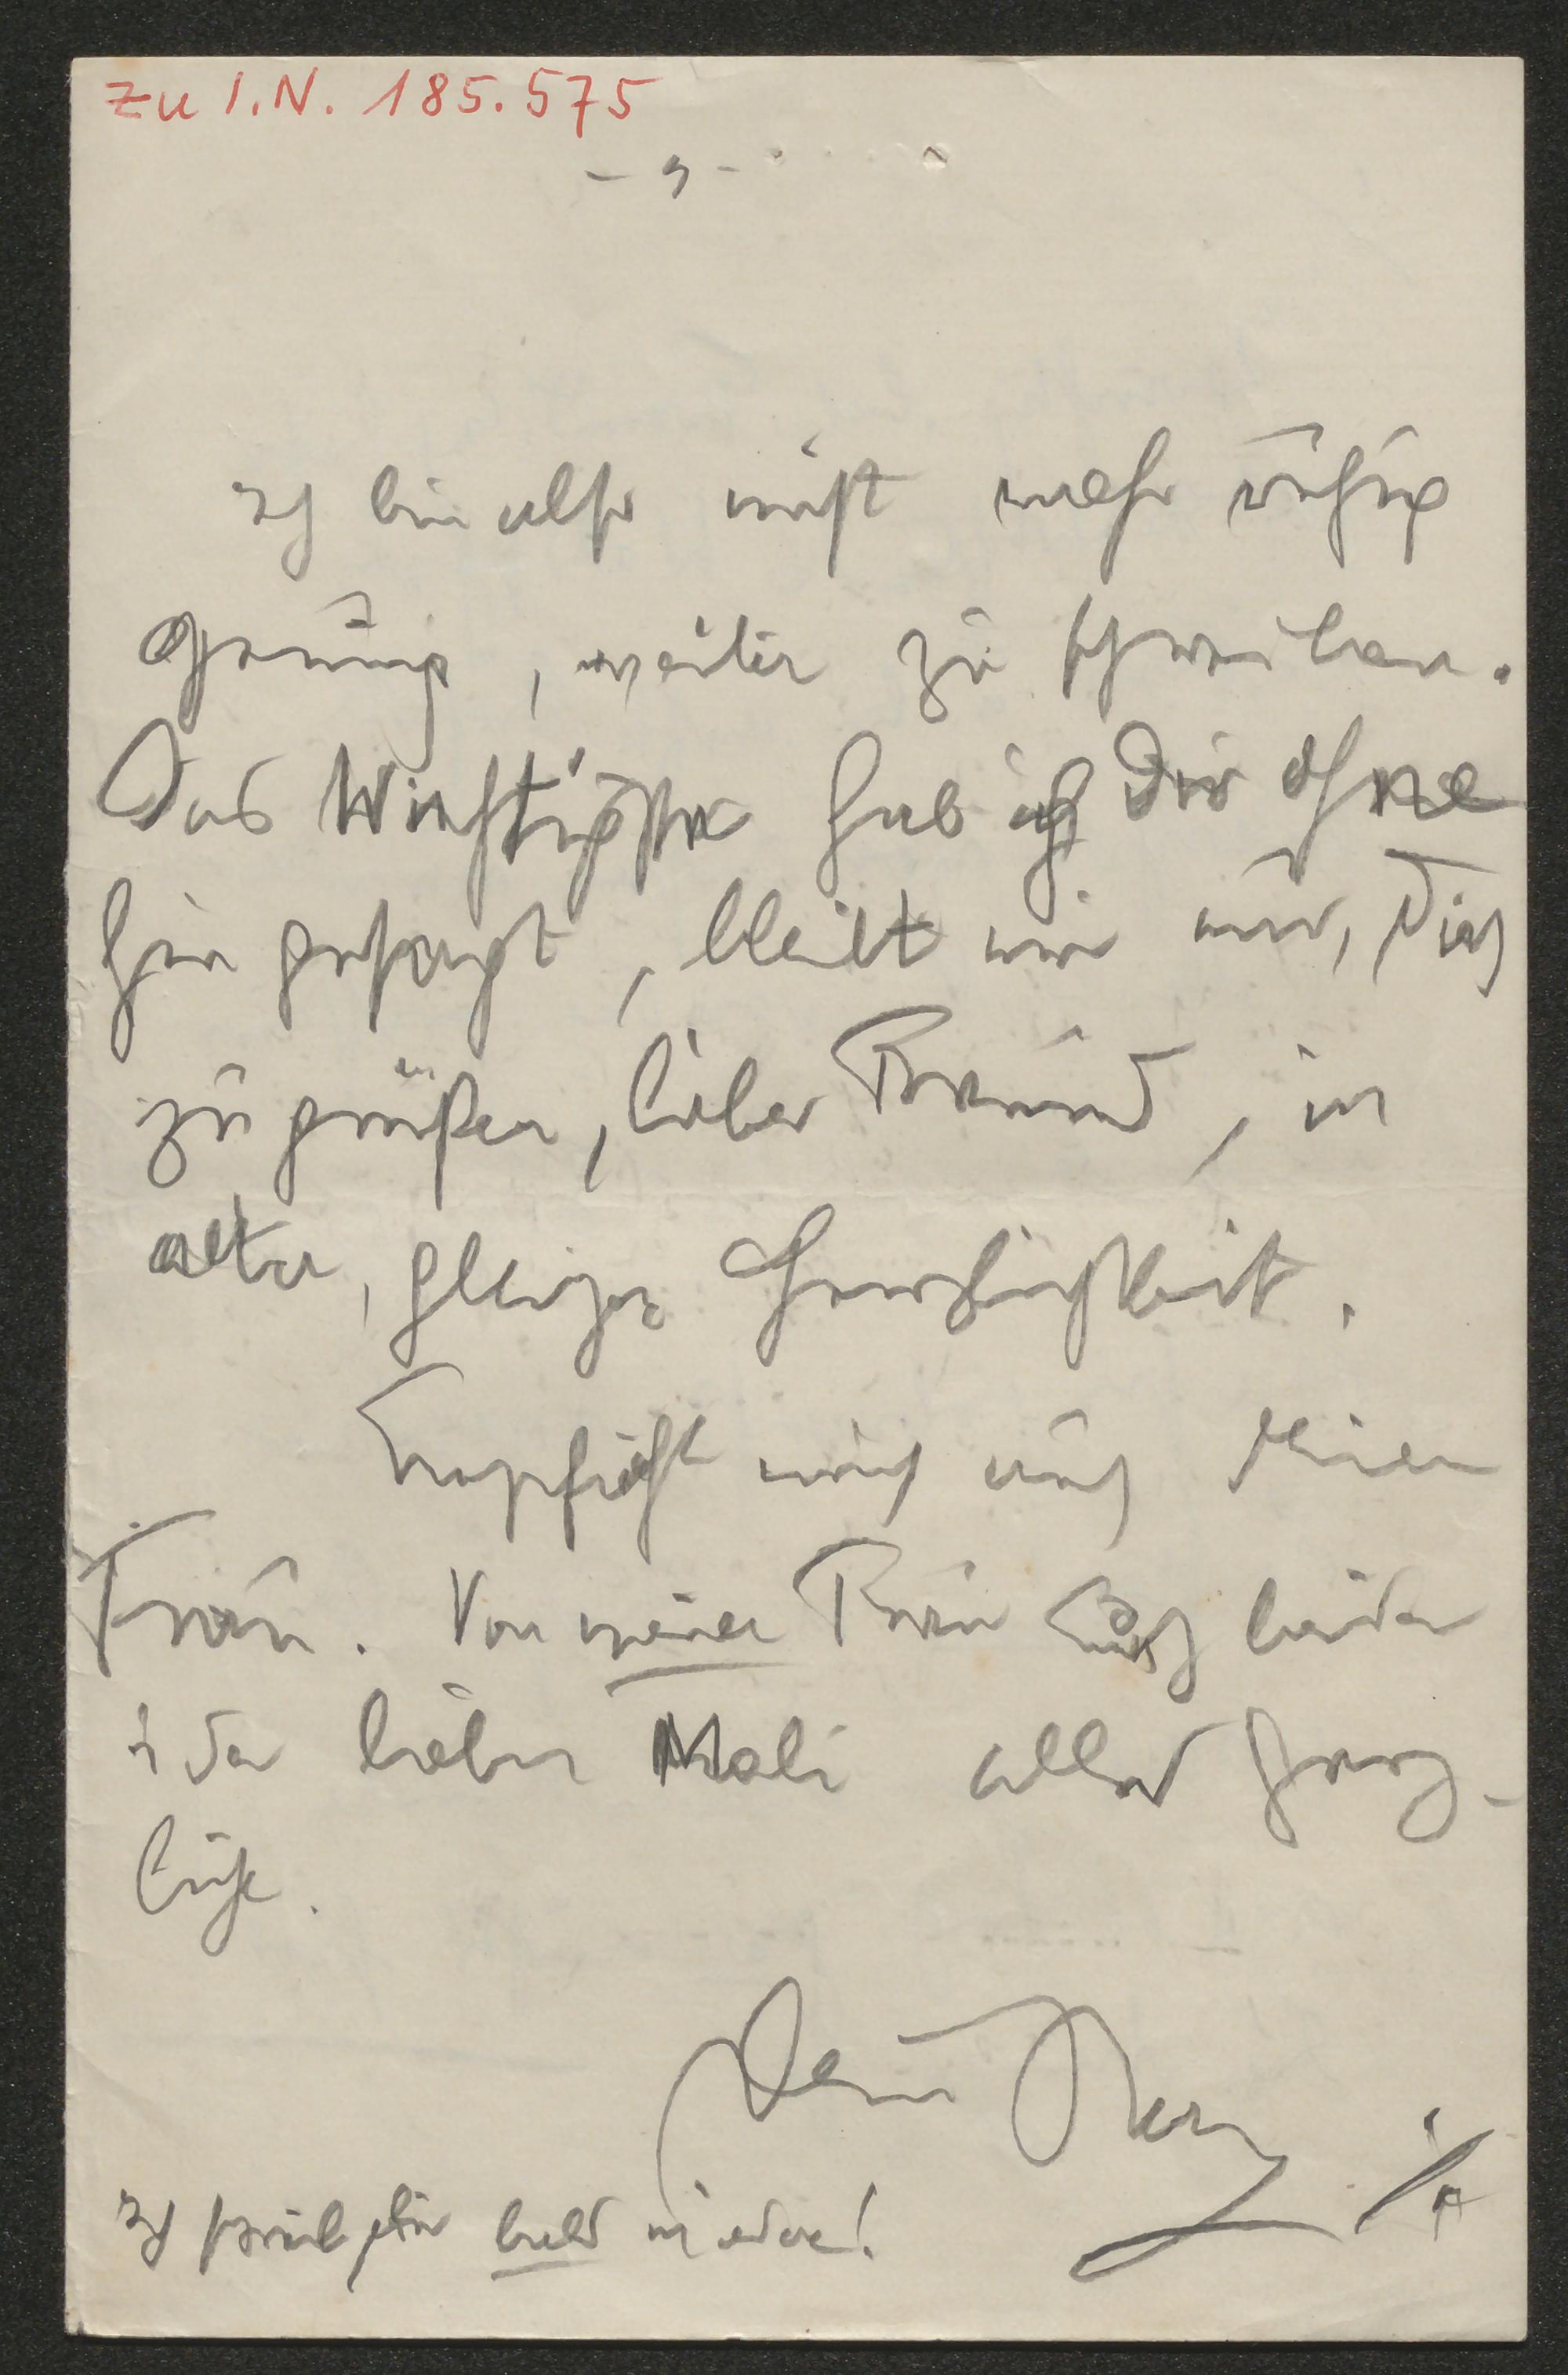 Zu I.N. 185.575
- 9 -
Ich bin also nicht mehr ruhig
genug, weiter zu schreiben.
Das Wichtigste hab ich Dir ohne
hin gesagt, bleibt mir nur, Dich
zu grüßen, lieber Freund, in
alter, gleicher Herzlichkeit.
Empfiehl mich auch Deiner
Frau. Von meiner Frau Euch beiden
u der lieben Mali alles Herz-
liche.
Dein
Ich schreib Dir bald wieder!